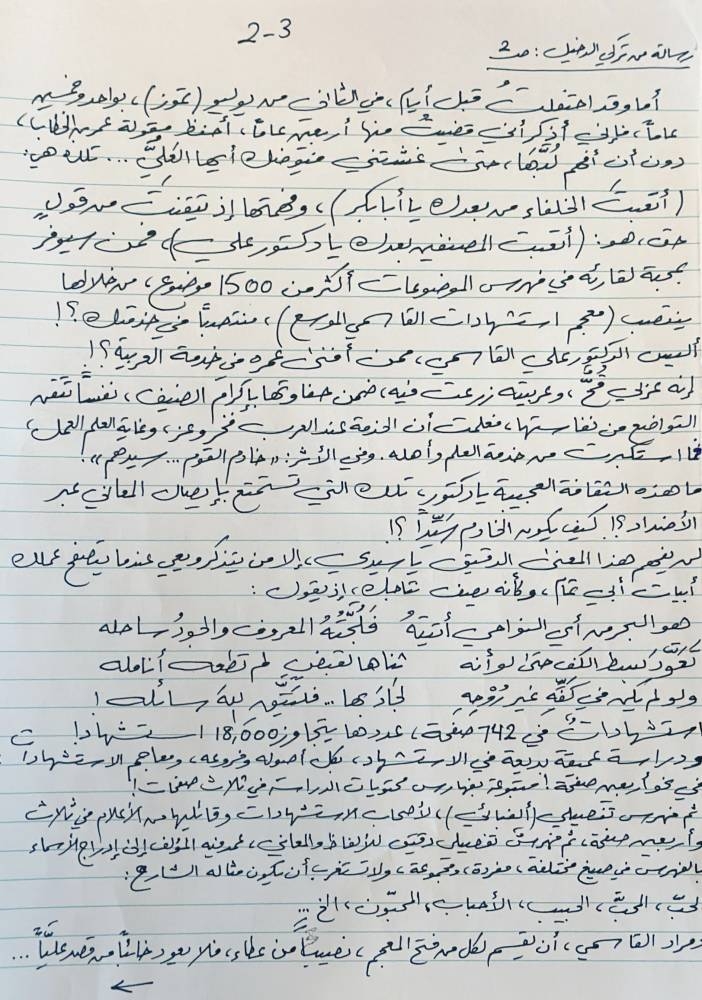 2-3
رسالة من تركي الدخيل: ص2
أما وقد احتفلتُ قبل أيام، في الثاني من يوليو (تموز)، بواحد وخمسين
عاماً، فإني أذكر أني قضيتُ منها أربعين عاماً، أحفظ مقولة عمر بن الخطاب،
دون أن أفهم لُبَّها، حتى غشتني فيوضك أيها العَلِيُّ... تلك هي:
(أتعبتَ الخلفاء من بعدك يا أبا بكر)، وفهمتها إذ تيقنت من قولٍ
حق، هو: (أتعبت المصنفين بعدك يا دكتور علي)، فمن سيوفر
بمحبة لقارئه في فهرس الموضوعات أكثر من 1500 موضوع، من خلالها
ينتصب (معجم استشهادات القاسمي الموسع)، منتصباً في خدمتك؟!
أليس الدكتور علي القاسمي، ممن أفنى عمره في خدمة العربية؟!
إنه عربي قُحٌّ، وعربيته زرعت فيه، ضمن حفاوتها بإكرام الضيف، نفساً تتقن
التواضع من نفاستها، فعلمت أن الخدمة عند العرب فخر وعز، وغاية العلم العمل،
فما استكبرت من خدمة العلم وأهله. وفي الأثر: «خادم القوم... سيدهم»!
ما هذه الثقافة العجيبة يا دكتور، تلك التي تستمتع بإيصال المعاني عبر
الأضداد؟! كيف يكون الخادم سَيِّداً؟!
لن يفهم هذا المعنى الدقيق يا سيدي، إلا من يتذكر ويعي عندما يتصفح عملك
أبيات أبي تمام، وكأنه يصف نتاجك، إذ يقول:
هو البحر من أي النواحي أتيتهُ فَلُجَّتُهُ المعروف والجودُ ساحله
تَعَوَّدَ بسط الكف حتى لو أنه ثناها لقبضٍ لم تطعه أنامله
ولو لم يكن في كفِّهِ غير رُوْحِهِ لجَادَ بها... فليتَّقِ اللهَ سائله!
استشهاداتٌ في 742 صفحة، عددها يتجاوز 18,000 استشهاد!
ودراسة عميقة بديعة في الاستشهاد، بكل أصوله وفروعه، ومعاجم الاستشهادات،
في نحو أربعين صفحة! متبوعة بفهارس محتويات الدراسة في ثلاث صفحات!
ثم فهرس تفصيلي (ألفبائي)، لأصحاب الاستشهادات وقائليها من الأعلام في ثلاث
وأربعين صفحة، ثم فهرسٌ تفصيلي دقيق للألفاظ والمعاني، عمد فيه المؤلف إلى إدراج الأسماء
بالفهرس في صيغ مختلفة، مفردة، ومجموعة، ولا تستغرب أن يكون مثاله الشارح:
لحبّ، المحبّ، الحبيب، الأحباب، المحبّون، الخ...
ومراد القاسمي، أن يقسم لكل من فتح المعجم، نصيباً من عطاء، فلا يعود خائباً من قصد عليّاً...
←